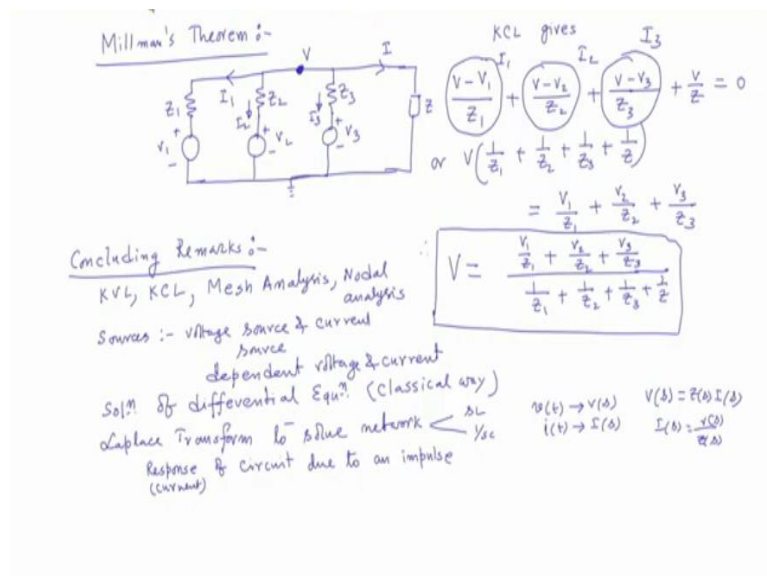 Millman's Theorem :-
V
I
Z1 I1 Z2 I2 Z3 I3 Z
V1 + - + V2 - + V3 -
KCL gives
I1 I2 I3
(V-V1)/Z1 + (V-V2)/Z2 + (V-V3)/Z3 + V/Z = 0
or V(1/Z1 + 1/Z2 + 1/Z3 + 1/Z)
= V1/Z1 + V2/Z2 + V3/Z3
∴ V = (V1/Z1 + V2/Z2 + V3/Z3) / (1/Z1 + 1/Z2 + 1/Z3 + 1/Z)
Concluding Remarks :-
KVL, KCL, Mesh Analysis, Nodal
analysis
Sources :- voltage source & current
source
dependent voltage & current
Solⁿ of differential Equⁿ (classical way)
Laplace Transform to solve network < sL
1/sc
Response of circuit due to an impulse
(current)
v(t) → V(s) V(s) = Z(s) I(s)
i(t) → I(s) I(s) = V(s)/Z(s)